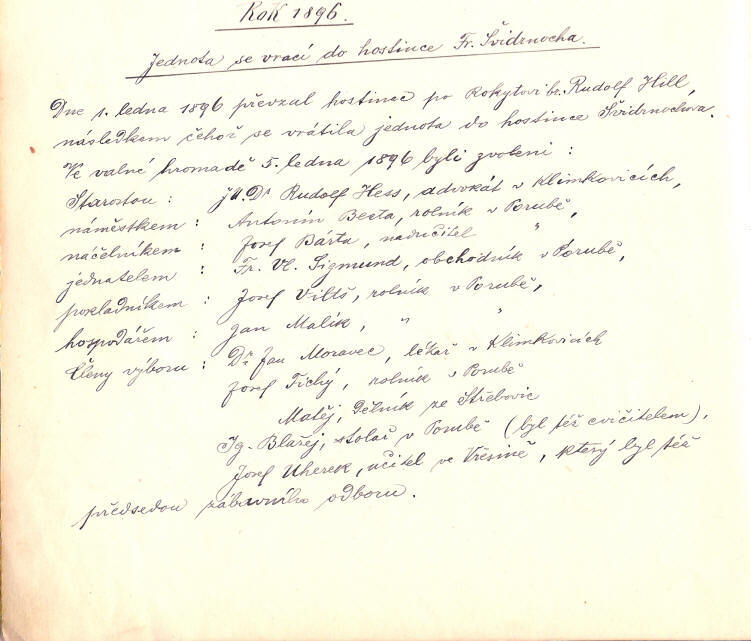 Rok 1896.
Jednota se vrací do hostince Fr. Švidrnocha.
Dne 1. ledna 1896 převzal hostinec po Rokytovi br. Rudolf Hill,
následkem čehož se vrátila jednota do hostince Švidrnochova.
Ve valné hromadě 5. ledna 1896 byli zvoleni :
Starostou : JU.Dr Rudolf Hess, advokát v Klimkovicích,
náměstkem : Antonín Besta, rolník v Porubě,
náčelníkem : Josef Bárta, nadučitel "
jednatelem : Fr. Vl. Sigmund, obchodník v Porubě,
pokladníkem : Josef Viltš, rolník v Porubě,
hospodářem : Jan Malík, " "
Členy výboru : Dr. Jan Moravec, lékař v Klimkovicích
Josef Tichý, rolník v Porubě
Matěj, Dělník ze Střebovic
Ig. Blažej, stolař v Porubě (byl též cvičitelem),
Josef Uherek, učitel ve Vřesině, který byl též
předsedou zábavního odboru.